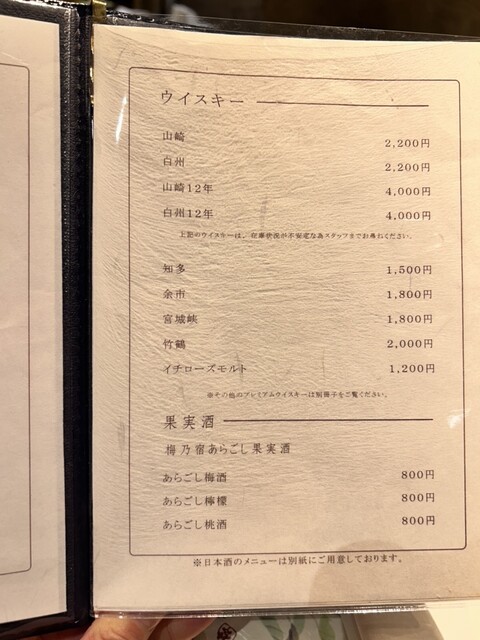 ウイスキー
山崎 2,200円
白州 2,200円
山崎12年 4,000円
白州12年 4,000円
上記のウイスキーは、在庫状況が不安定な為スタッフまでお尋ねください。
知多 1,500円
余市 1,800円
宮城峡 1,800円
竹鶴 2,000円
イチローズモルト 1,200円
※その他のプレミアムウイスキーは別冊子をご覧ください。
果実酒
梅乃宿あらごし果実酒
あらごし梅酒 800円
あらごし檸檬 800円
あらごし桃酒 800円
※日本酒のメニューは別紙にご用意しております。